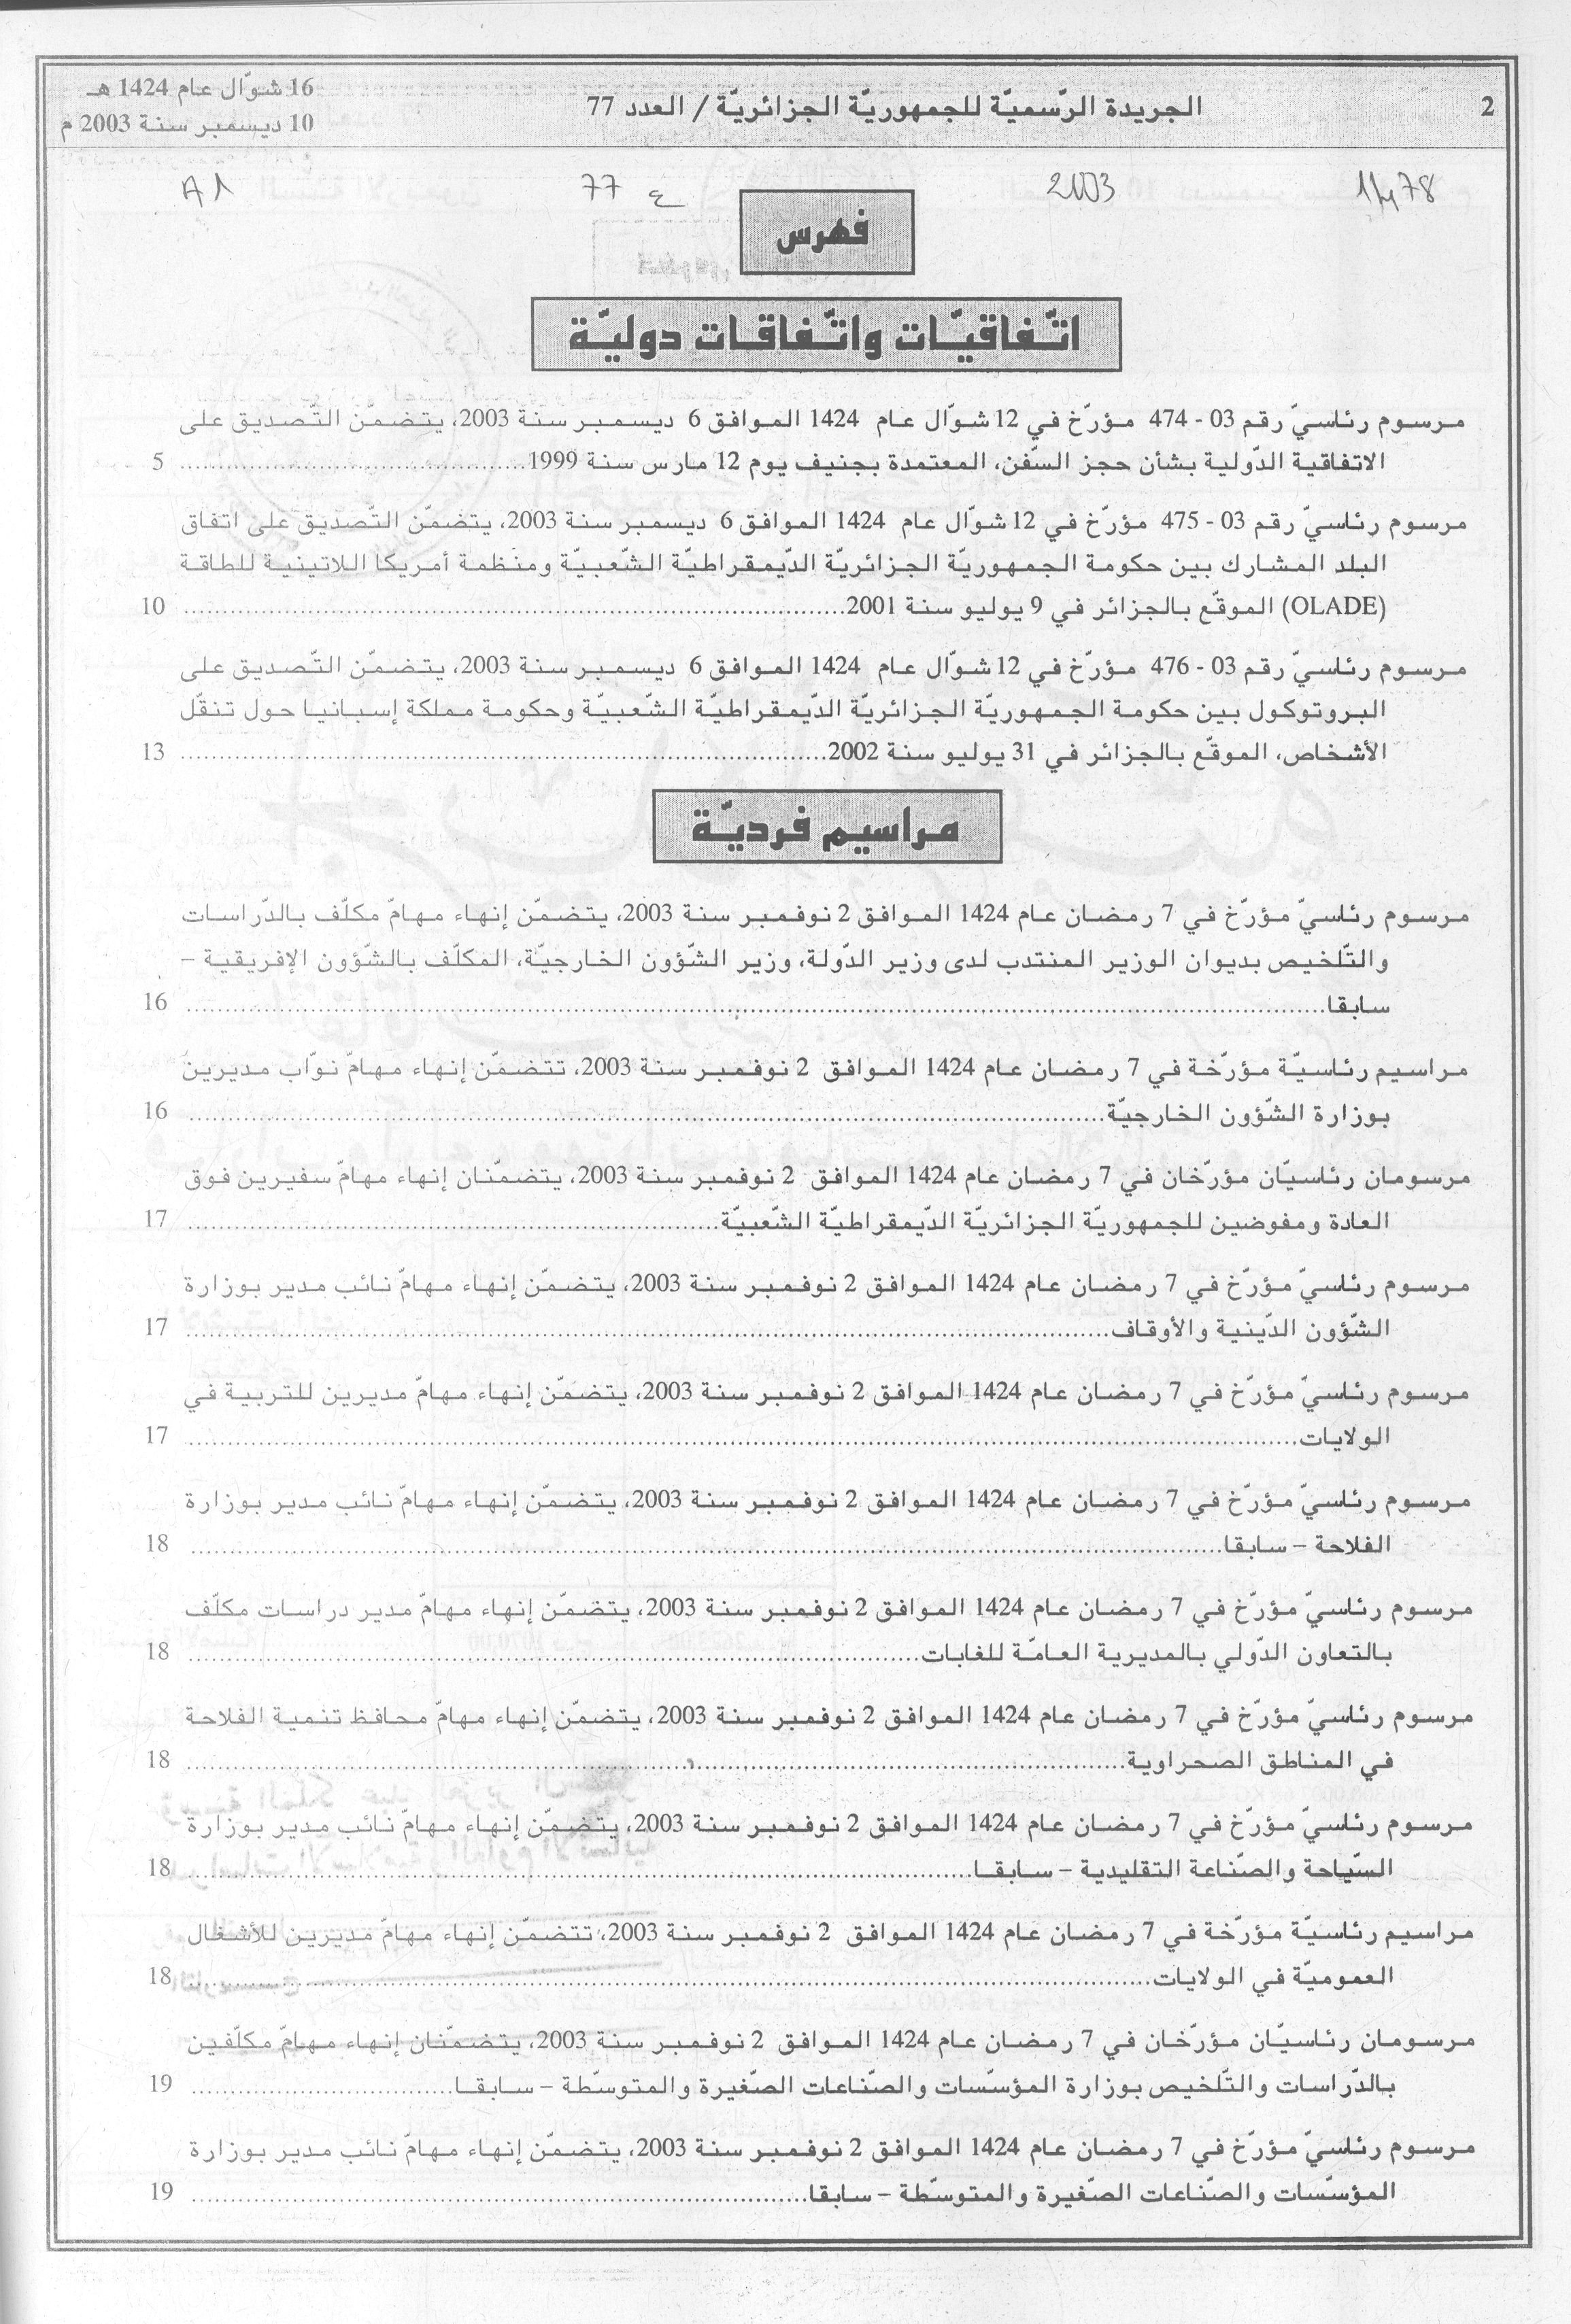 2
الجريدة الرّسميّة للجمهوريّة الجزائريّة / العدد 77
16 شوّال عام 1424 هـ
10 ديسمبر سنة 2003 م
2003
77 ع
A1
فهرس
اتّفاقيّات واتّفاقات دوليّة
مرسوم رئاسيّ رقم 03 - 474 مؤرّخ في 12 شوّال عام 1424 الموافق 6 ديسمبر سنة 2003، يتضمّن التّصديق على
الاتفاقية الدّولية بشأن حجز السّفن، المعتمدة بجنيف يوم 12 مارس سنة 1999........................................ 5
مرسوم رئاسيّ رقم 03 - 475 مؤرّخ في 12 شوّال عام 1424 الموافق 6 ديسمبر سنة 2003، يتضمّن التّصديق على اتفاق
البلد المشارك بين حكومة الجمهوريّة الجزائريّة الدّيمقراطيّة الشّعبيّة ومنظمة أمريكا اللاتينية للطاقة
(OLADE) الموقّع بالجزائر في 9 يوليو سنة 2001........................................ 10
مرسوم رئاسيّ رقم 03 - 476 مؤرّخ في 12 شوّال عام 1424 الموافق 6 ديسمبر سنة 2003، يتضمّن التّصديق على
البروتوكول بين حكومة الجمهوريّة الجزائريّة الدّيمقراطيّة الشّعبيّة وحكومة مملكة إسبانيا حول تنقّل
الأشخاص، الموقّع بالجزائر في 31 يوليو سنة 2002........................................ 13
مراسيم فرديّة
مرسوم رئاسيّ مؤرّخ في 7 رمضان عام 1424 الموافق 2 نوفمبر سنة 2003، يتضمّن إنهاء مهامّ مكلّف بالدّراسات
والتّلخيص بديوان الوزير المنتدب لدى وزير الدّولة، وزير الشّؤون الخارجيّة، المكلّف بالشّؤون الإفريقية –
سابقا........................................ 16
مراسيم رئاسيّة مؤرّخة في 7 رمضان عام 1424 الموافق 2 نوفمبر سنة 2003، تتضمّن إنهاء مهامّ نوّاب مديرين
بوزارة الشّؤون الخارجيّة........................................ 16
مرسومان رئاسيّان مؤرّخان في 7 رمضان عام 1424 الموافق 2 نوفمبر سنة 2003، يتضمّنان إنهاء مهامّ سفيرين فوق
العادة ومفوضين للجمهوريّة الجزائريّة الدّيمقراطيّة الشّعبيّة........................................ 17
مرسوم رئاسيّ مؤرّخ في 7 رمضان عام 1424 الموافق 2 نوفمبر سنة 2003، يتضمّن إنهاء مهامّ نائب مدير بوزارة
الشّؤون الدّينية والأوقاف........................................ 17
مرسوم رئاسيّ مؤرّخ في 7 رمضان عام 1424 الموافق 2 نوفمبر سنة 2003، يتضمّن إنهاء مهامّ مديرين للتربية في
الولايات........................................ 17
مرسوم رئاسيّ مؤرّخ في 7 رمضان عام 1424 الموافق 2 نوفمبر سنة 2003، يتضمّن إنهاء مهامّ نائب مدير بوزارة
الفلاحة – سابقا........................................ 18
مرسوم رئاسيّ مؤرّخ في 7 رمضان عام 1424 الموافق 2 نوفمبر سنة 2003، يتضمّن إنهاء مهامّ مدير دراسات مكلّف
بالتعاون الدّولي بالمديرية العامّة للغابات........................................ 18
مرسوم رئاسيّ مؤرّخ في 7 رمضان عام 1424 الموافق 2 نوفمبر سنة 2003، يتضمّن إنهاء مهامّ محافظ تنمية الفلاحة
في المناطق الصحراوية........................................ 18
مرسوم رئاسيّ مؤرّخ في 7 رمضان عام 1424 الموافق 2 نوفمبر سنة 2003، يتضمّن إنهاء مهامّ نائب مدير بوزارة
السّياحة والصّناعة التقليدية – سابقا........................................ 18
مراسيم رئاسيّة مؤرّخة في 7 رمضان عام 1424 الموافق 2 نوفمبر سنة 2003، تتضمّن إنهاء مهامّ مديرين للأشغال
العموميّة في الولايات........................................ 18
مرسومان رئاسيّان مؤرّخان في 7 رمضان عام 1424 الموافق 2 نوفمبر سنة 2003، يتضمّنان إنهاء مهامّ مكلّفين
بالدّراسات والتّلخيص بوزارة المؤسّسات والصّناعات الصّغيرة والمتوسّطة – سابقا........................................ 19
مرسوم رئاسيّ مؤرّخ في 7 رمضان عام 1424 الموافق 2 نوفمبر سنة 2003، يتضمّن إنهاء مهامّ نائب مدير بوزارة
المؤسّسات والصّناعات الصّغيرة والمتوسّطة – سابقا........................................ 19